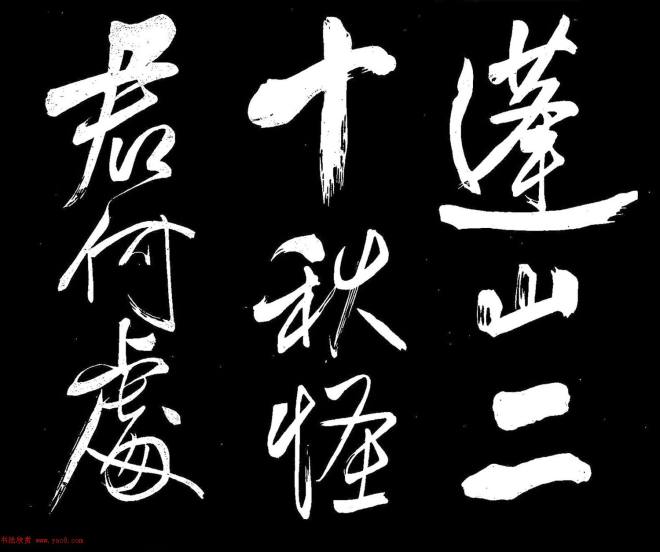 蓬山二
十秋怪
君何處
书法欣赏 www.yac8.com